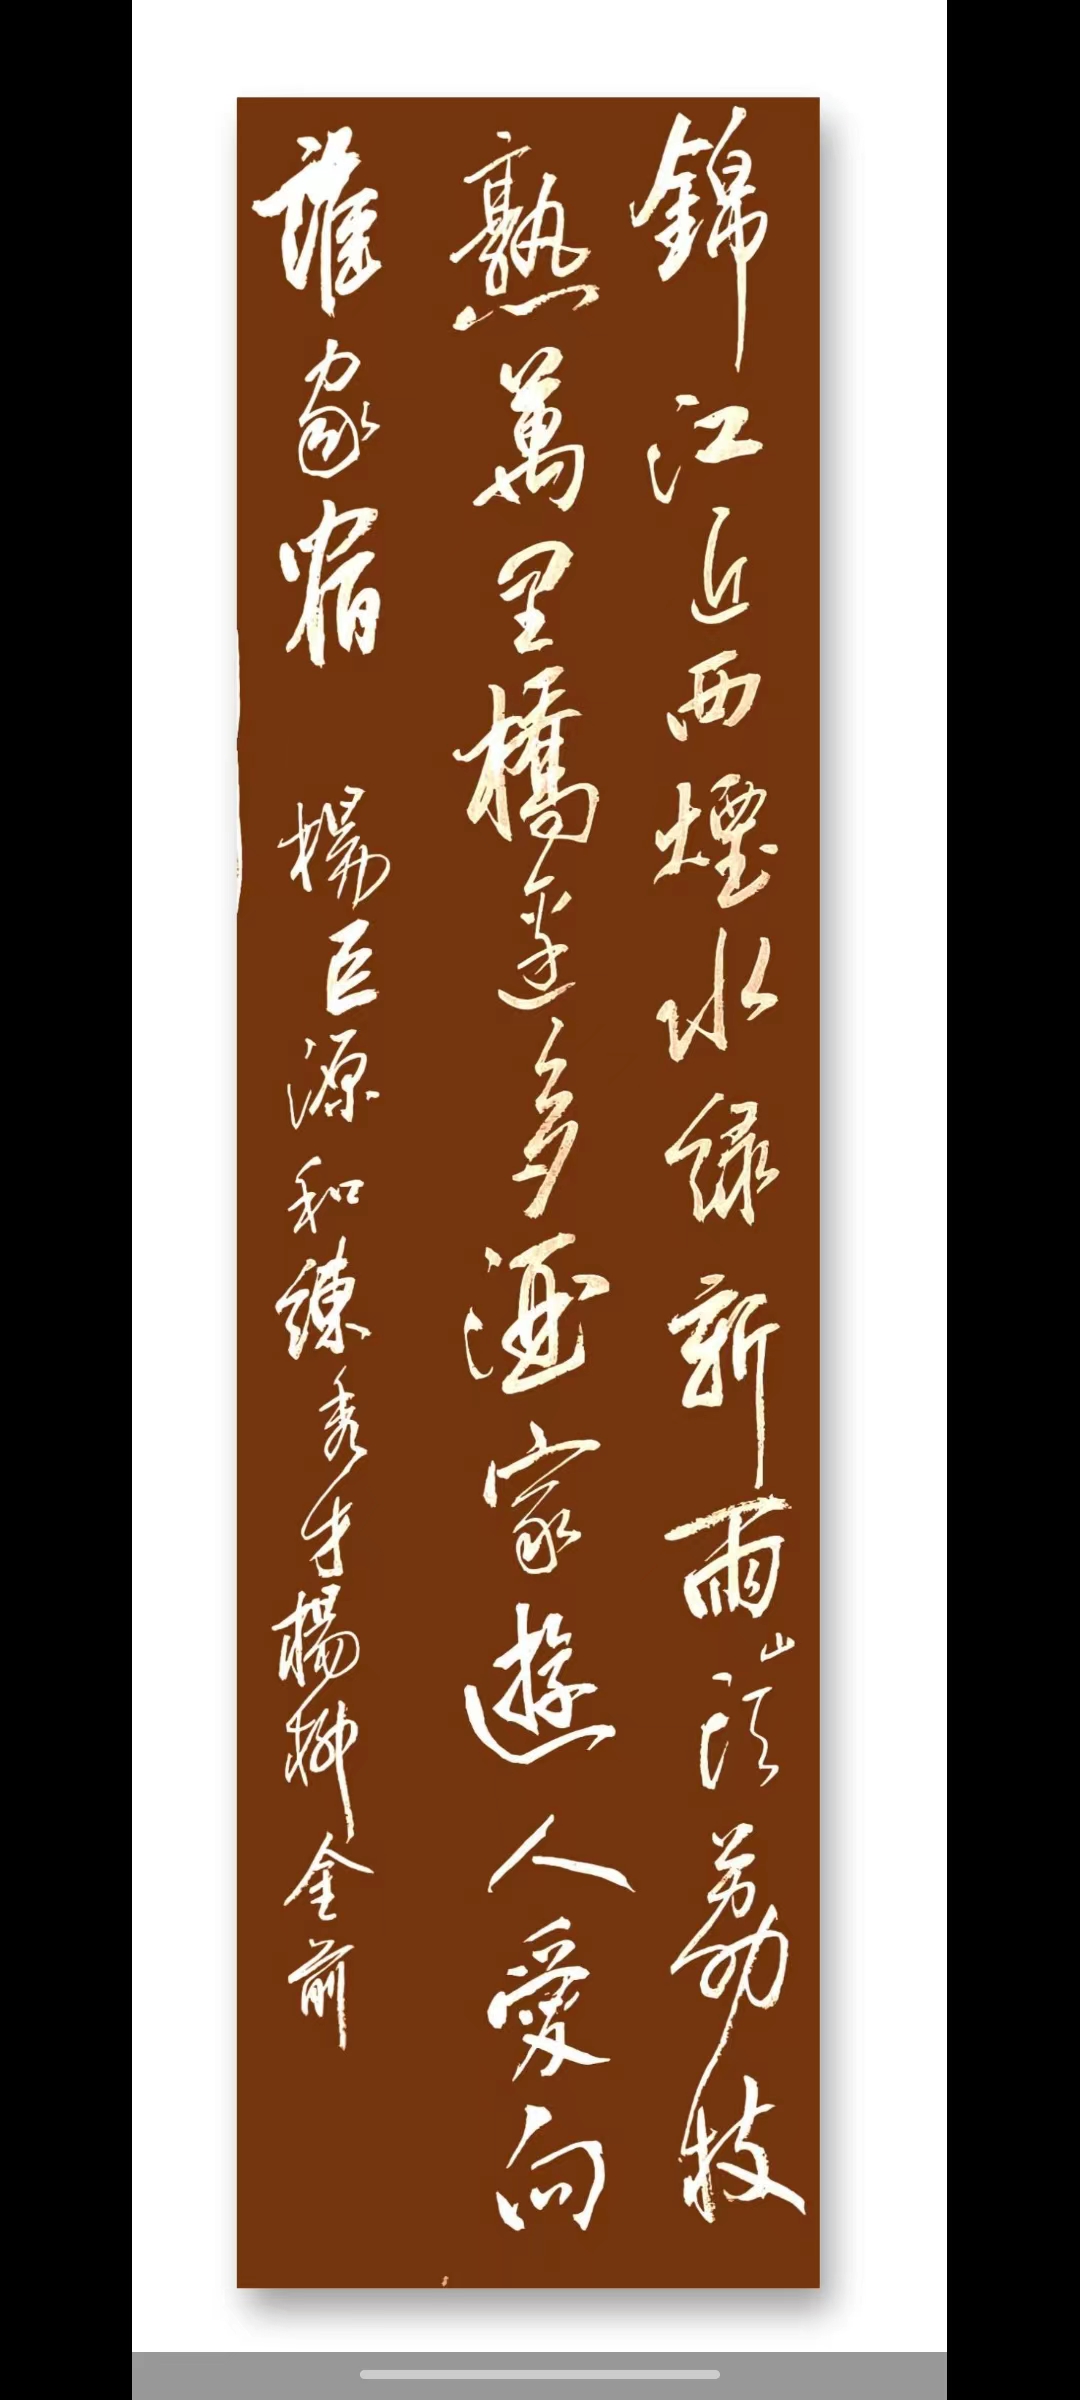 錦江近西煙水綠新雨山頭荔枝
熟萬里橋邊多酒家遊人愛向
誰家宿 楊巨源和練秀才楊柳金前